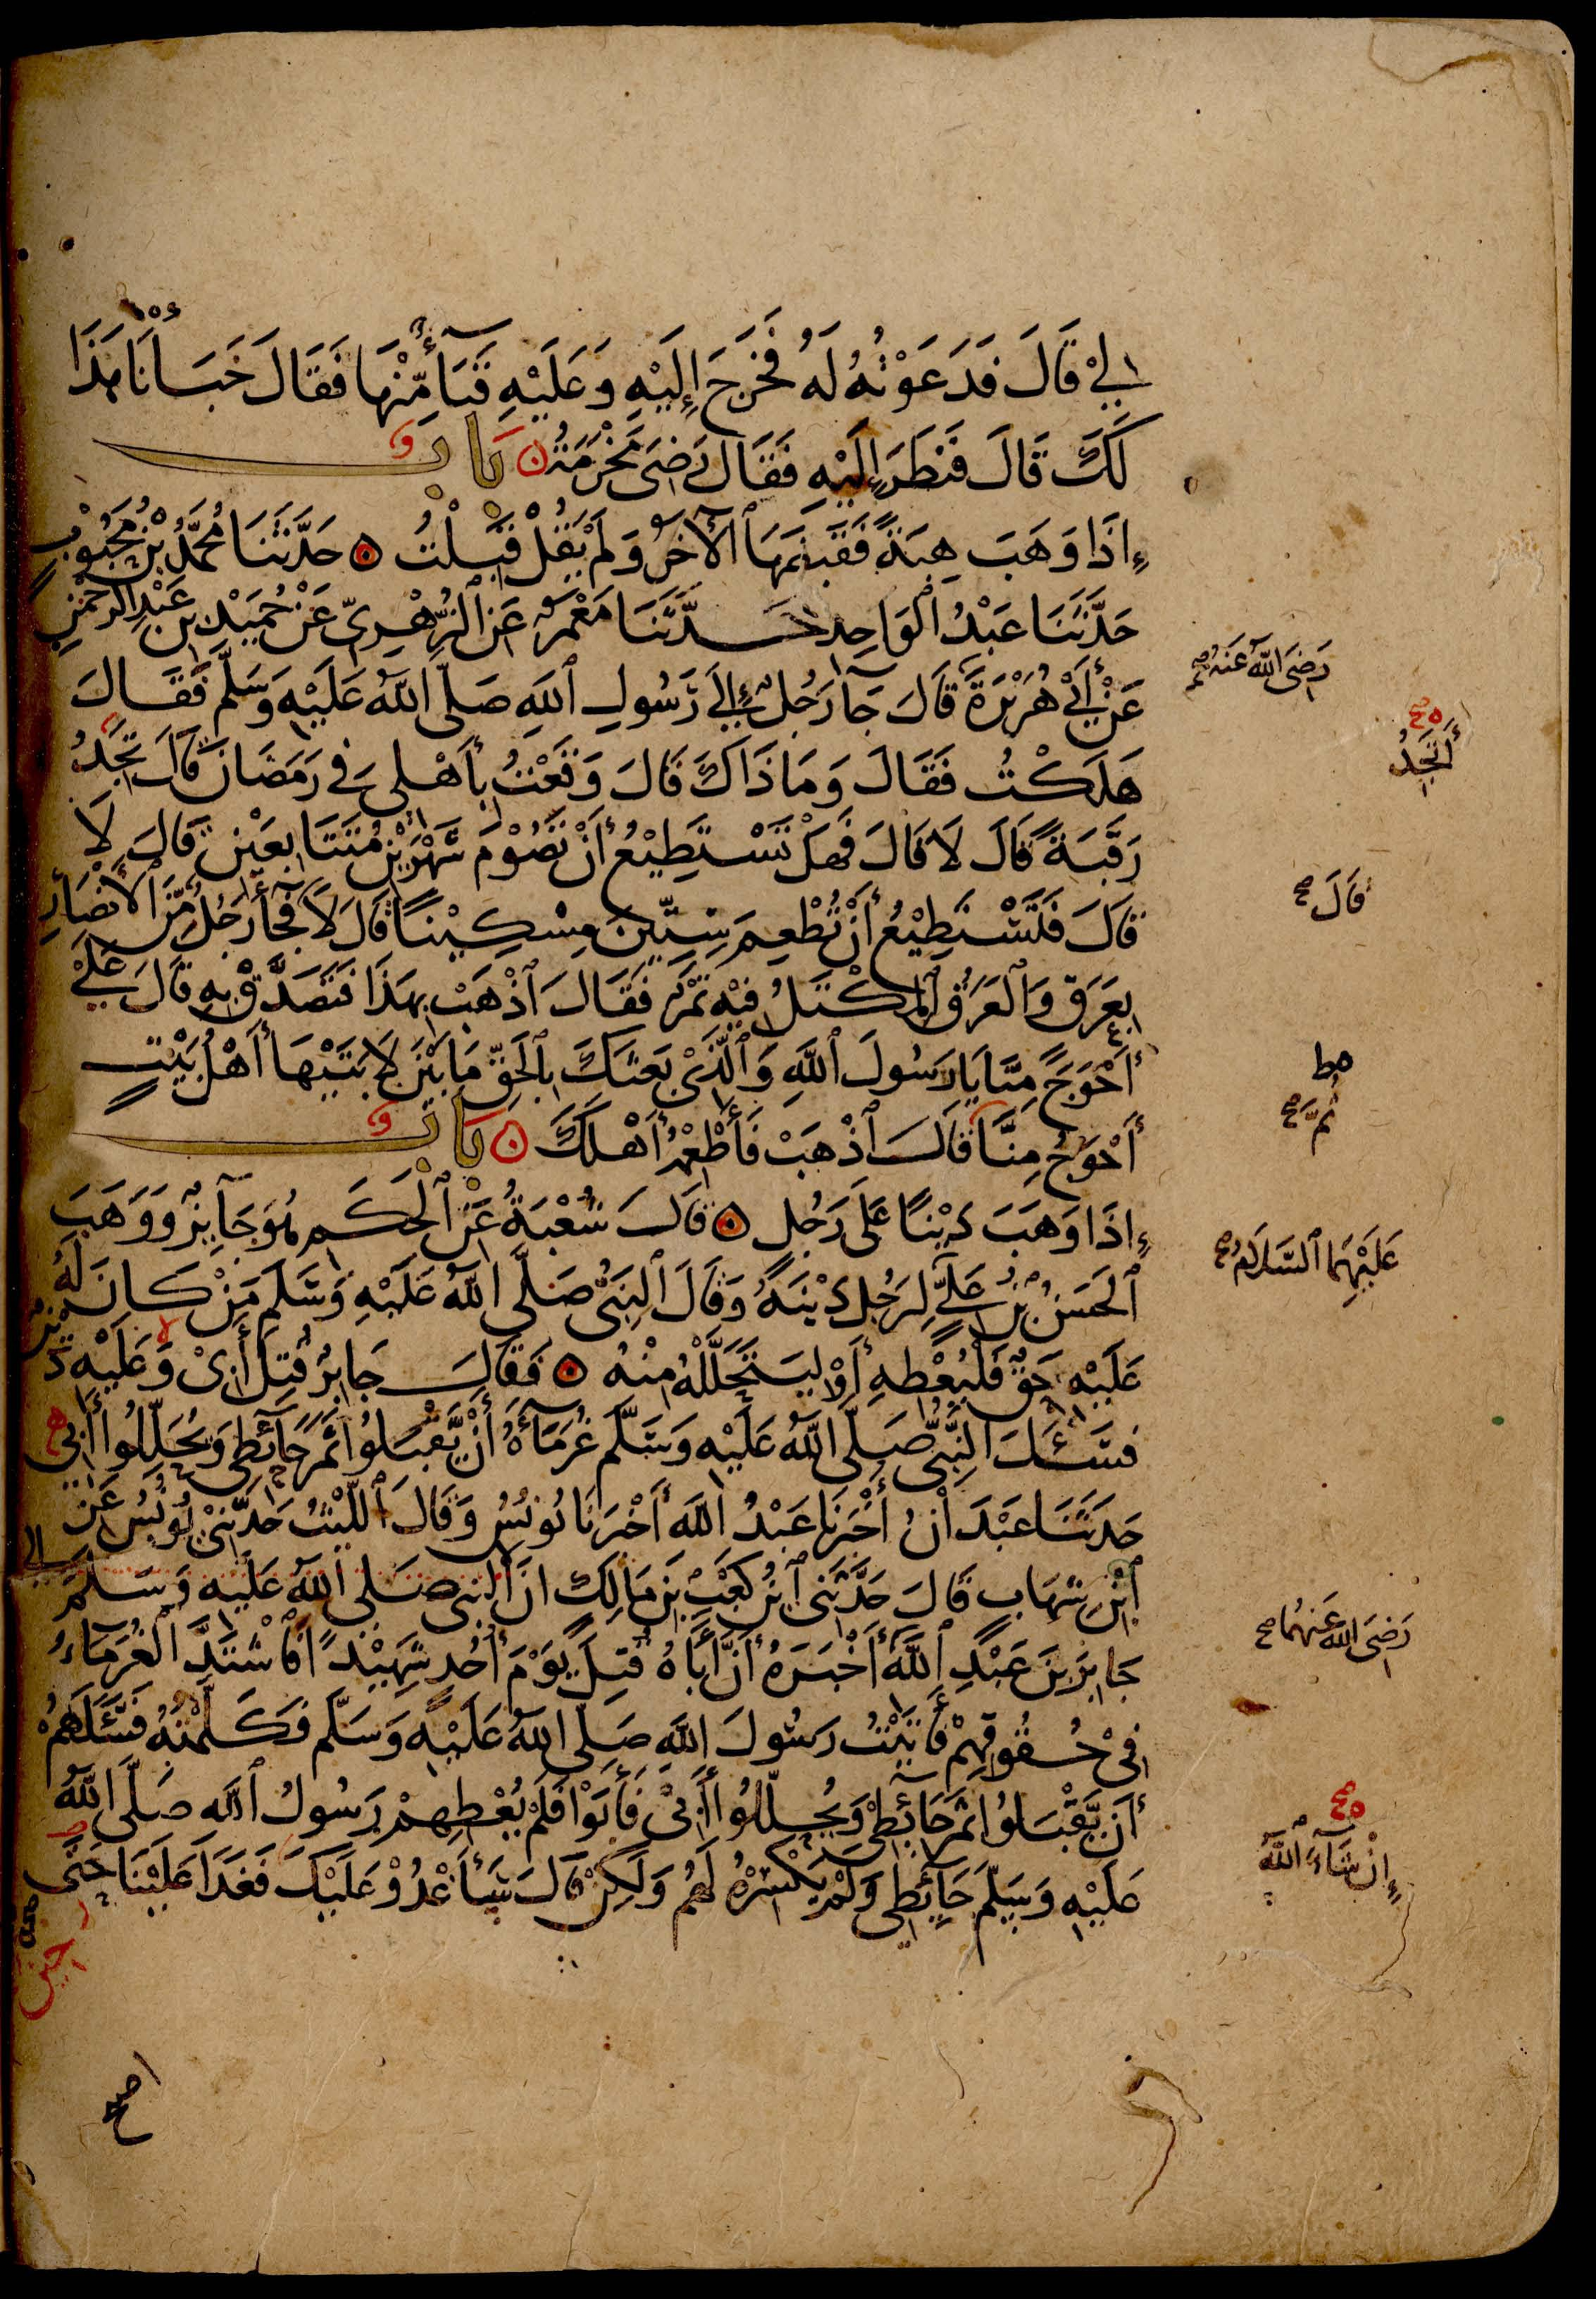 لِي قَالَ فَدَعَوْتُهُ لَهُ فَخَرَجَ إِلَيْهِ وَعَلَيْهِ قَبَآءٌ مِّنْهَا فَقَالَ خَبَأْنَا هَذَا
لَكَ قَالَ فَنَظَرَ إِلَيْهِ فَقَالَ رَضِيَ مَخْرَمَةُ بَابٌ
إِذَا وَهَبَ هِبَةً فَقَبَضَهَا ٱلْآخَرُ وَلَمْ يَقُلْ قَبِلْتُ حَدَّثَنَا مُحَمَّدُ بْنُ مَحْبُوْبٍ
حَدَّثَنَا عَبْدُ ٱلْوَاحِدِ حَدَّثَنَا مَعْمَرٌ عَنِ ٱلزُّهْرِيِّ عَنْ حُمَيْدِ بْنِ عَبْدِ الرَّحْمٰنِ
عَنْ أَبِيْ هُرَيْرَةَ قَالَ جَآءَ رَجُلٌ إِلَى رَسُولِ ٱللهِ صَلَّى اللهُ عَلَيْهِ وَسَلَّمَ فَقَالَ
رَضِيَ اللهُ عَنْهُ صح
هَلَكْتُ فَقَالَ وَمَا ذَاكَ قَالَ وَقَعْتُ بِأَهْلِي فِي رَمَضَانَ قَالَ تَجِدُ
أَتَجِدُ
رَقَبَةً قَالَ لَا قَالَ فَهَلْ تَسْتَطِيْعُ أَنْ تَصُوْمَ شَهْرَيْنِ مُتَتَابِعَيْنِ قَالَ لَا
قَالَ فَتَسْتَطِيْعُ أَنْ تُطْعِمَ سِتِّيْنَ مِسْكِيْنًا قَالَ لَا فَجَآءَ رَجُلٌ مِّنَ ٱلْأَنْصَارِ
قَالَ صح
بِعَرَقٍ وَٱلْعَرَقُ ٱلْمِكْتَلُ فِيْهِ تَمْرٌ فَقَالَ ٱذْهَبْ بِهَذَا فَتَصَدَّقْ بِهِ قَالَ عَلَى
أَحْوَجَ مِنَّا يَا رَسُولَ ٱللهِ وَٱلَّذِيْ بَعَثَكَ بِٱلْحَقِّ مَا بَيْنَ لَابَتَيْهَا أَهْلُ بَيْتٍ
أَحْوَجُ مِنَّا قَالَ ٱذْهَبْ فَأَطْعِمْهُ أَهْلَكَ بَابٌ
ثُمَّ صح
إِذَا وَهَبَ دَيْنًا عَلَى رَجُلٍ قَالَ شُعْبَةُ عَنِ ٱلْحَكَمِ هُوَ جَآئِزٌ وَوَهَبَ
ٱلْحَسَنُ بْنُ عَلِيٍّ لِرَجُلٍ دَيْنَهُ وَقَالَ ٱلنَّبِيُّ صَلَّى اللهُ عَلَيْهِ وَسَلَّمَ مَنْ كَانَ لَهُ
عَلَيْهِمَا ٱلسَّلَامُ صح
عَلَيْهِ حَقٌّ فَلْيُعْطِهِ أَوْ لِيَتَحَلَّلْهُ مِنْهُ فَقَالَ جَابِرٌ قُتِلَ أَبِيْ وَعَلَيْهِ دَيْنٌ
فَسَئَلَ النَّبِيُّ صَلَّى اللهُ عَلَيْهِ وَسَلَّمَ غُرَمَآءَهُ أَنْ يَّقْبَلُوا ثَمَرَ حَآئِطِي وَيُحَلِّلُوا أَبِي
حَدَّثَنَا عَبْدَانُ أَخْبَرَنَا عَبْدُ اللهِ أَخْبَرَنَا يُونُسُ وَقَالَ ٱللَّيْثُ حَدَّثَنِيْ يُونُسُ عَنِ
ٱبْنِ شِهَابٍ قَالَ حَدَّثَنِي ٱبْنُ كَعْبِ بْنِ مَالِكٍ أَنَّ النَّبِيَّ صَلَّى اللهُ عَلَيْهِ وَسَلَّمَ
جَابِرَ بْنَ عَبْدِ ٱللهِ أَخْبَرَهُ أَنَّ أَبَاهُ قُتِلَ يَوْمَ أُحُدٍ شَهِيْدًا فَٱشْتَدَّ ٱلْغُرَمَاءُ
رَضِيَ اللهُ عَنْهُمَا صح
فِيْ حُقُوقِهِمْ فَأَتَيْتُ رَسُولَ اللهِ صَلَّى اللهُ عَلَيْهِ وَسَلَّمَ فَكَلَّمْتُهُ فَسَئَلَهُمْ
أَنْ يَّقْبَلُوا ثَمَرَ حَآئِطِيْ وَيُحَلِّلُوا أَبِيْ فَأَبَوْا فَلَمْ يُعْطِهِمْ رَسُولُ ٱللهِ صَلَّى اللهُ
عَلَيْهِ وَسَلَّمَ حَآئِطِي وَلَمْ يَكْسِرْهُ لَهُمْ وَلَكِنْ قَالَ سَأَغْدُوْ عَلَيْكَ فَغَدَا عَلَيْنَا حَتَّى
إِنْ شَآءَ ٱللهُ
حِيْنَ